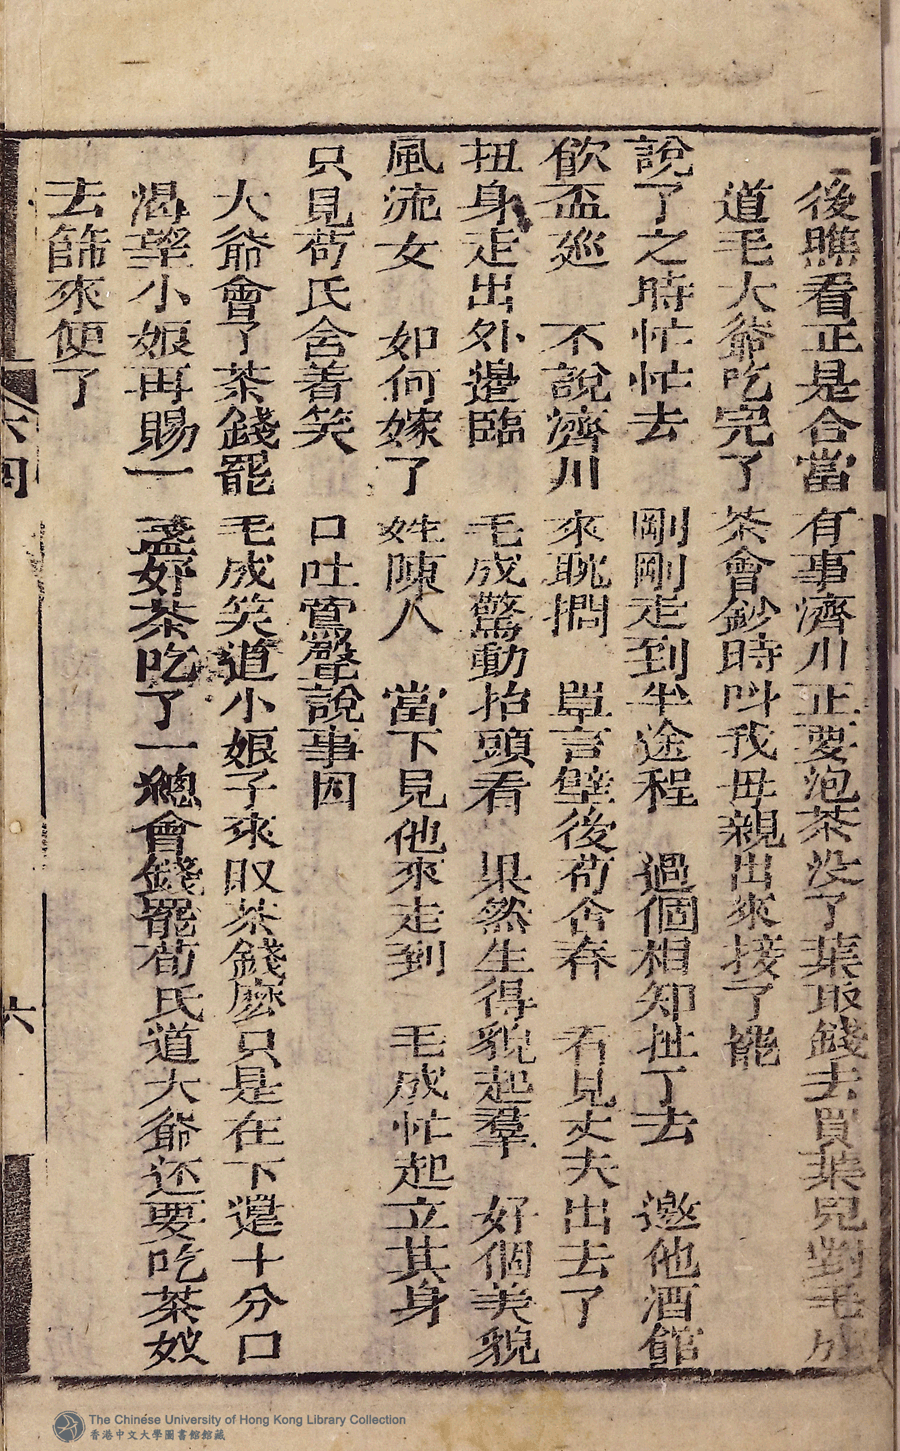 後瞧看正是合當有事濟川正要泡茶没了葉取錢去買葉兒對毛成
道毛大爺吃完了茶會鈔時呌我毋親出來接了罷
說了之時忙忙去 剛剛走到半途程 過個相知扯了去 邀他酒館
飮盃巡 不說濟川來耽擱 單言壁後荀含春 看見丈夫出去了
扭身走出外邊臨 毛成驚動抬頭看 果然生得貌起羣 好個美貌
風流女 如何嫁了姓陳人 當下見他來走到 毛成忙起立其身
只見荀氏含着笑 口吐鶯聲說事因
大爺會了茶錢罷毛成笑道小娘子來取茶錢麽只是在下還十分口
渴望小娘再賜一盞好茶吃了一總會錢罷荀氏道大爺还要吃茶奴
去篩來便了
六四
六
The Chinese University of Hong Kong Library Collection
香港中文大學圖書館館藏